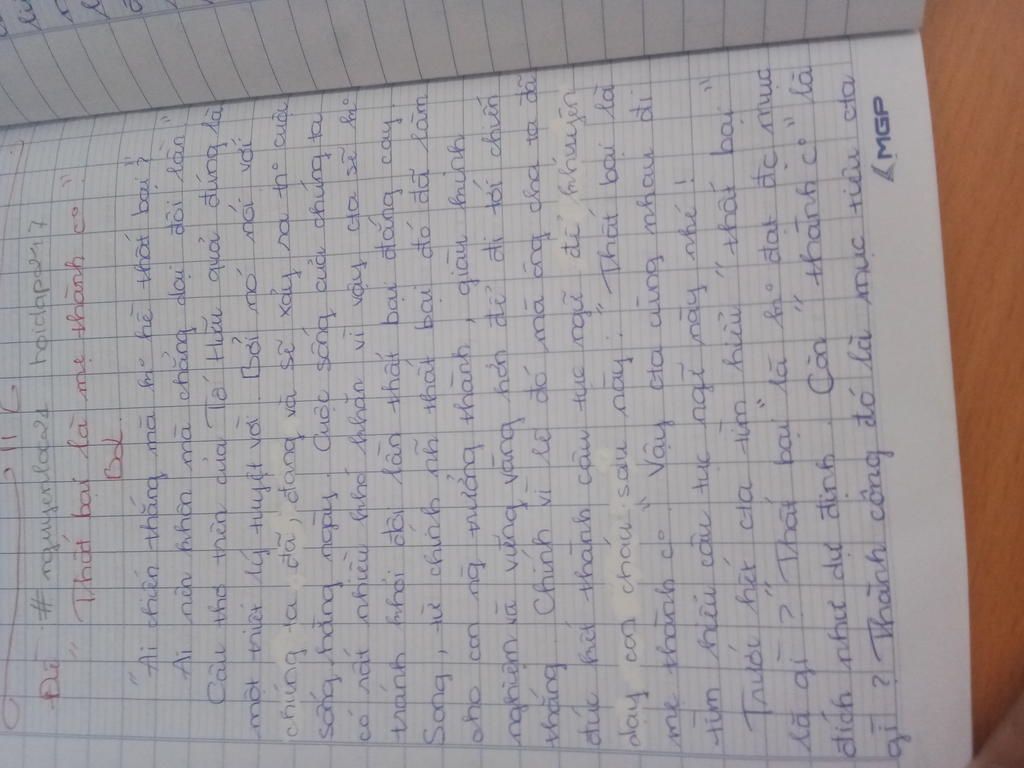 Đề : # nguyenloa21 hoidap247
" Thất bại là mẹ thành cº "
BL
" Ai chiến thắng mà hº hề thất bại ?
Ai nên khôn mà chẳng dại đôi lần "
Câu thơ trên của Tố Hữu quả đúng là
một triết lý tuyệt vời. Bởi nó nói với
chúng ta đã, đang và sẽ xảy ra trº cuộc
sống hằng ngày. Cuộc sống của chúng ta
có rất nhiều khó khăn vì vậy cta sẽ hº
tránh khỏi đôi lần thất bại đắng cay
Song, từ chính nh~ thất bại đó đã làm
cho con ng trưởng thành, giàu kinh
nghiệm và vững vàng hơn để đi tới chiến
thắng. Chính vì lẽ đó mà ông cha ta đã
đúc kết thành câu tục ngữ để khuyên
dạy con cháu sau này : " Thất bại là
mẹ thành cº " Vậy cta cùng nhau đi
tìm hiểu câu tục ngữ này nhé !
Trước hết cta tìm hiểu " thất bại "
là gì ? " Thất bại " là hº đạt đc mục
đích như dự định. Còn " thành cº " là
gì ? Thành công đó là mục tiêu cta
MGP